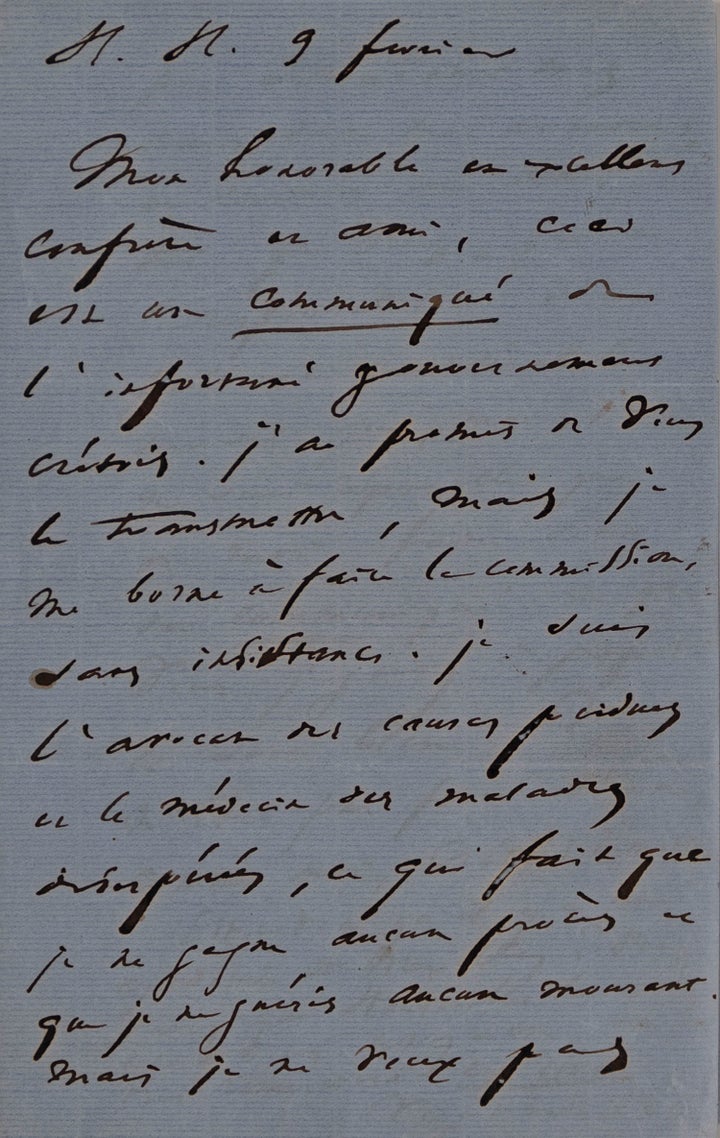 H. H. 9 février
Mon honorable et excellent
confrère et ami, ceci
est un communiqué de
l'infortuné gouvernement
crétois. j'ai promis de vous
le transmettre, mais je
me borne à faire la commission,
sans insistance. je suis
l'avocat des causes perdues
et le médecin des malades
désespérés, ce qui fait que
je ne gagne aucun procès et
que je ne guéris aucun mourant.
mais je ne veux pas